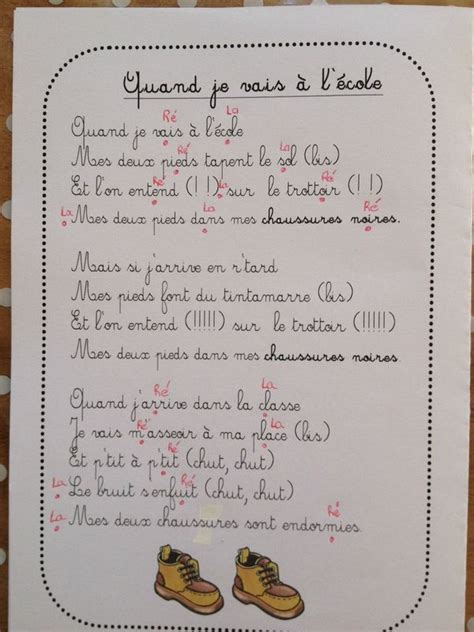 Quand je vais à l'école
Ré La
Quand je vais à l'école
Ré La
Mes deux pieds tapent le sol (bis)
Ré La Ré
Et l'on entend (! !) sur le trottoir (! !)
La La Ré
Mes deux pieds dans mes chaussures noires.
Mais si j'arrive en r'tard
Mes pieds font du tintamarre (bis)
Et l'on entend (!!!!!) sur le trottoir (!!!!!)
Mes deux pieds dans mes chaussures noires.
Ré La
Quand j'arrive dans la classe
Ré La
Je vais m'asseoir à ma place (bis)
Ré
Et p'tit à p'tit (chut, chut)
La Ré
Le bruit s'enfuit (chut, chut)
La Ré
Mes deux chaussures sont endormies.